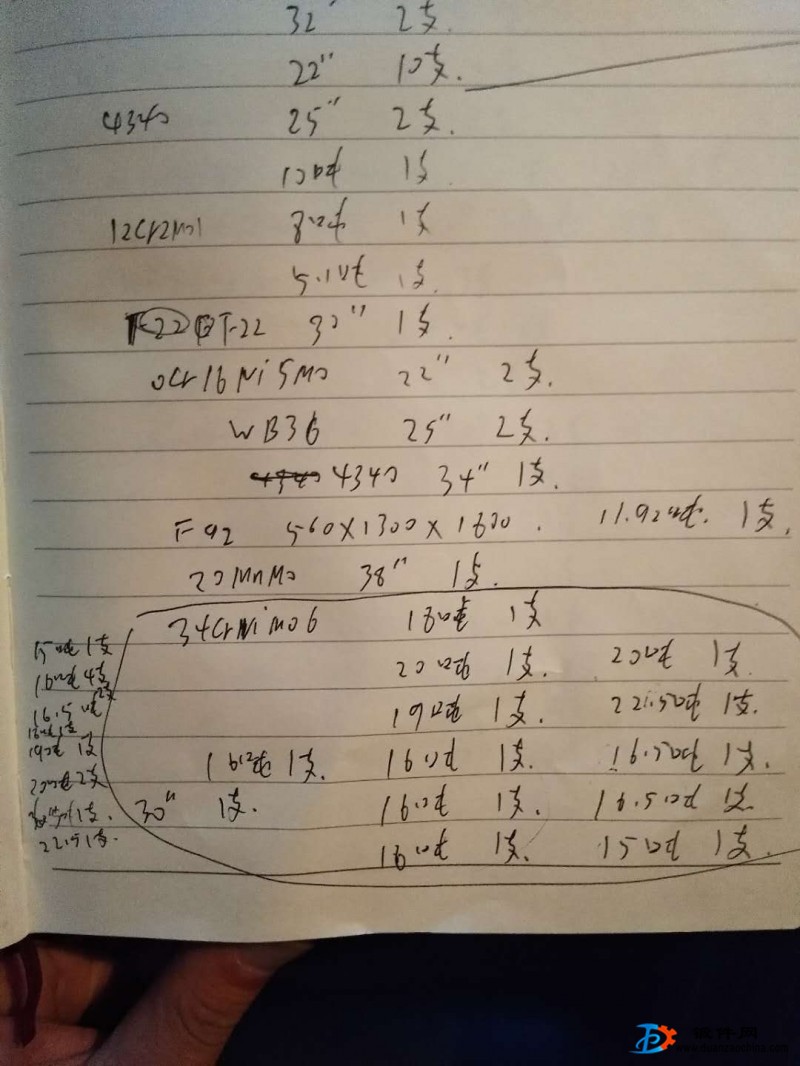 32" 2支.
22" 10支.
4340 25" 2支.
10吨 1支
12Cr2Mo1 8吨 1支
5.1吨 1支.
F-22 30" 1支.
0Cr16Ni5Mo 22" 2支.
WB36 25" 2支.
4340 34" 1支.
F92 560X1300X1600. 11.92吨. 1支.
20MnMo 38" 1支.
34CrNiMo6 18吨 1支
20吨 1支. 20吨 1支.
19吨 1支. 22.5吨 1支.
16吨 1支. 16吨 1支. 16.5吨 1支.
30" 1支. 16吨 1支. 16.5吨 1支.
1支. 15吨 1支.
15吨 1支
16吨 4支
16.5吨 2支
19吨 1支
20吨 2支
1支.
22.5 1支.